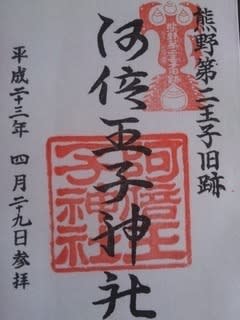 熊野第二王子旧跡
阿倍王子神社
平成二十三年 四月二十九日参拝
阿倍王子神社